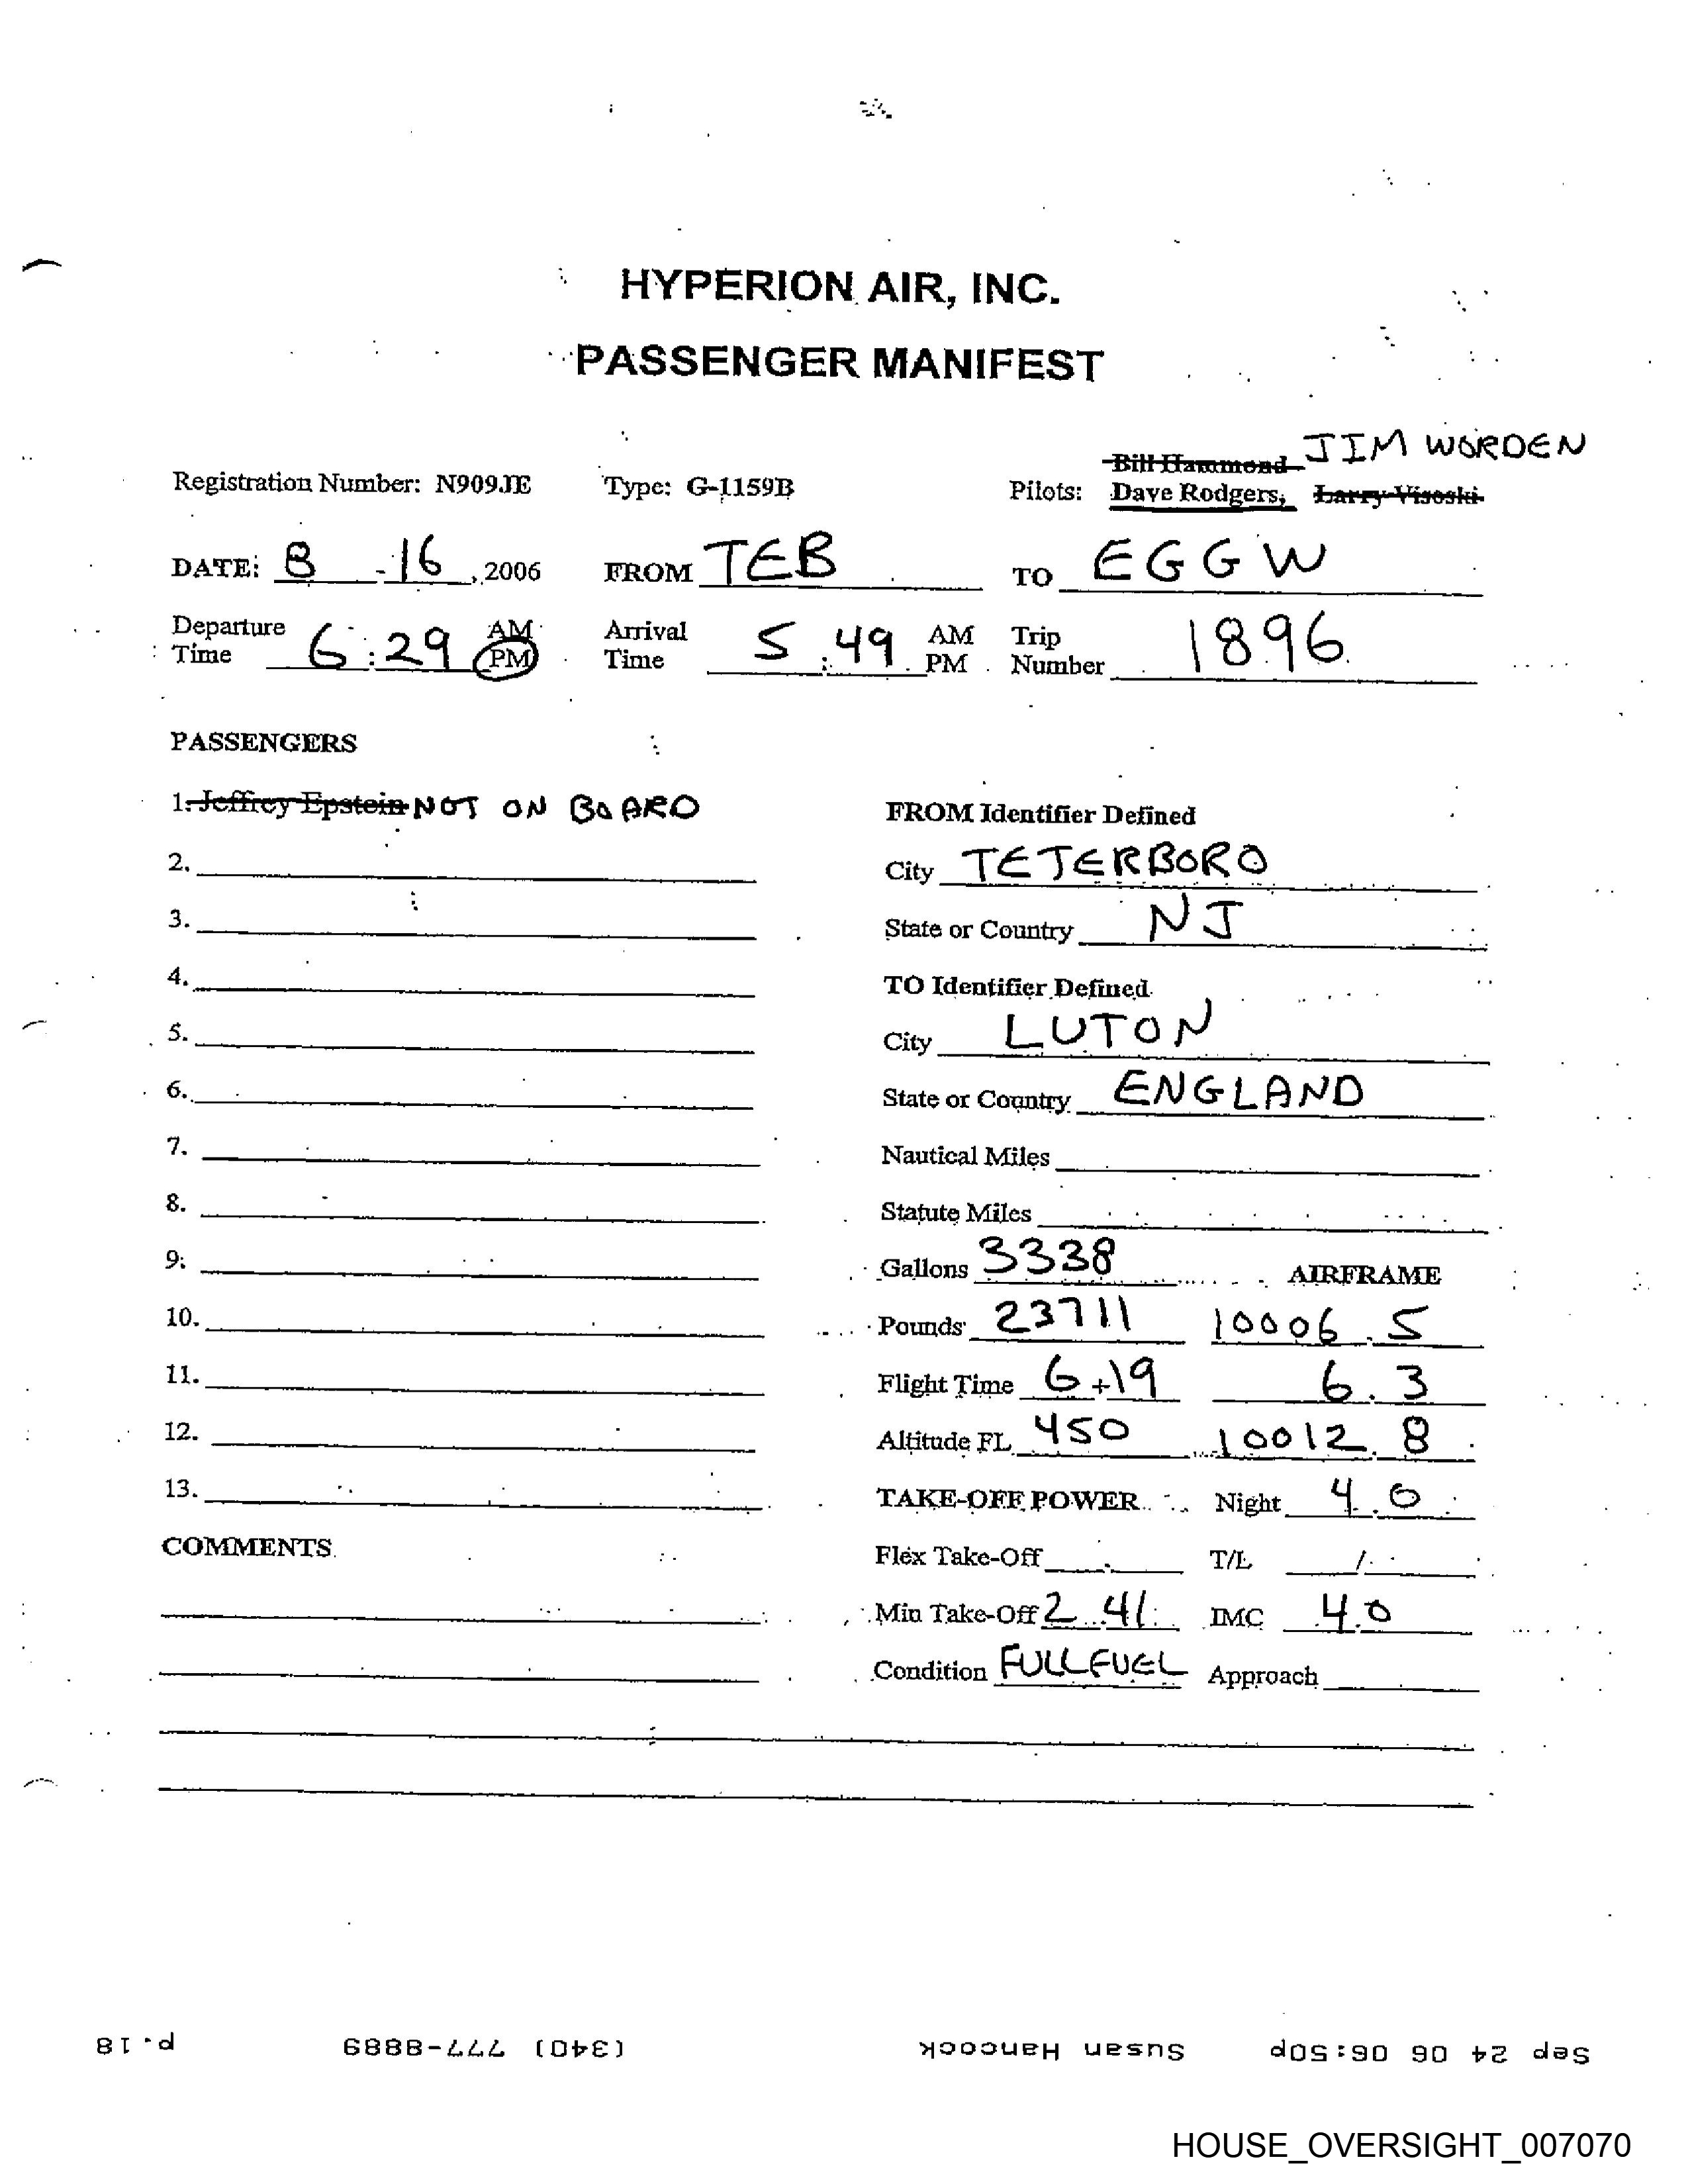 HYPERION AIR, INC.
PASSENGER MANIFEST
Bill Hammond JIM WORDEN
Registration Number: N909JE Type: G-1159B Pilots: Dave Rodgers, Larry Visoski
DATE: 8 - 16, 2006 FROM TEB TO EGGW
Departure Time 6:29 AM PM Arrival Time 5:49 AM PM Trip Number 1896
PASSENGERS
1. Jeffrey Epstein NOT ON BOARD
FROM Identifier Defined
2.
City TETERBORO
3.
State or Country NJ
4.
TO Identifier Defined
5.
City LUTON
6.
State or Country ENGLAND
7.
Nautical Miles
8.
Statute Miles
9.
Gallons 3338 AIRFRAME
10.
Pounds 23711 10006.5
11.
Flight Time 6+19 6.3
12.
Altitude FL 450 10012.8
13.
TAKE-OFF POWER Night 4.0
COMMENTS
Flex Take-Off . T/L /
Min Take-Off 2.41 IMC 4.0
Condition FULL FUEL Approach
Sep 24 06 06:50p Susan Hancock (340) 777-8889 p.18
HOUSE_OVERSIGHT_007070